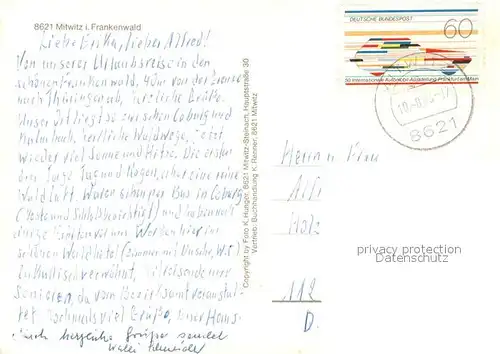 8621 Mitwitz i. Frankenwald
Liebe Erika, lieber Alfred!
Von unserer Urlaubsreise in den
schönen Frankenwald, 4 km von der Grenze
nach Thüringen ab, herzliche Grüße.
Unser Ort liegt so zwischen Coburg und
Kulmbach, herrliche Waldwege, jetzt
wieder viel Sonne und Hitze. Die ersten
drei Tage Regen, aber eine reine
Waldluft. Waren schon per Bus in Coburg
(Veste und Schloß besichtigt) und haben noch
einige Fahrten vor uns. Werden hier im
schönen Waldhotel (Zimmer mit Dusche, W.C.)
verwöhnt,
Senioren, da vom Bezirksamt veranstal-
tet. Nochmals viel Grüße, Euer Hans.
Auch herzliche Grüße sendet
Copyright by Foto K. Hunger, 8621 Mitwitz-Steinach, Hauptstraße 30
Vertrieb: Buchhandlung K. Renner, 8621 Mitwitz
DEUTSCHE BUNDESPOST
60
50 Internationale Automobil-Ausstellung Frankfurt am Main
8621
Herrn u. Frau
Alf
Holz
privacy protection
Datenschutz
112
D.